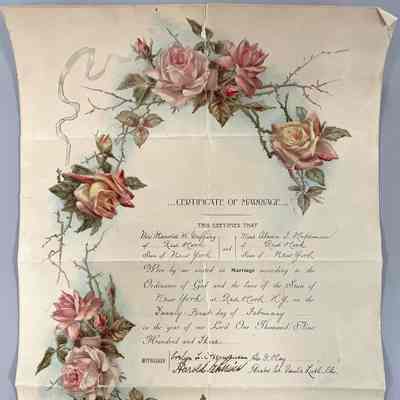 CERTIFICATE OF MARRIAGE
THIS CERTIFIES THAT
Mr. Harold H. Miss
of Red Hook and of Red Hook
State of New York State of New York
Were by me united in Marriage according to the
Ordinance of God and the laws of the State of
New York at Red Hook, N.Y. on the
Twenty First day of February
in the year of our Lord One Thousand Nine
Hundred and Three
WITNESSES Evelyn
Harold Pastor St. Paul's Luth. Ch.